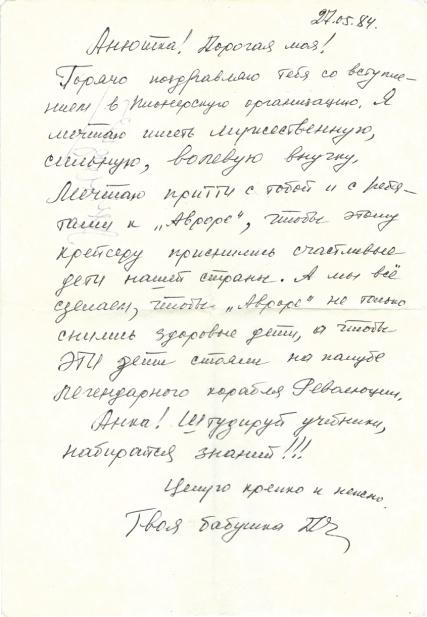 27.05.84.
Анютка! Дорогая моя!
Горячо поздравляю тебя со вступле-
нием в Пионерскую организацию. Я
мечтаю иметь мужественную,
сильную, волевую внучку.
Мечтаю притти с тобой и с ребя-
тами к „Авроре", чтобы этому
крейсеру приснились счастливые
дети нашей страны. А мы всё
сделаем, чтобы „Авроре" не только
снились здоровые дети, а чтобы
ЭТИ дети стояли на палубе
легендарного корабля Революции.
Анка! Штудируй учебники,
набирайся знаний!!!
Целую крепко и нежно.
Твоя бабушка